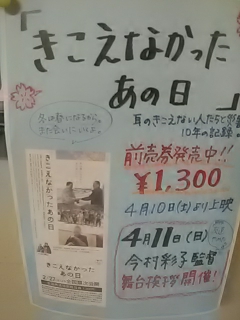 「きこえなかった
あの日」
耳のきこえない人たちと
10年の記録
前売券発売中!!
¥1,300
4月10日(土)より上映
4月11日(日)
今村彩子監督
舞台挨拶開催!
きこえなかった
あの日
きこえなかった
あの日